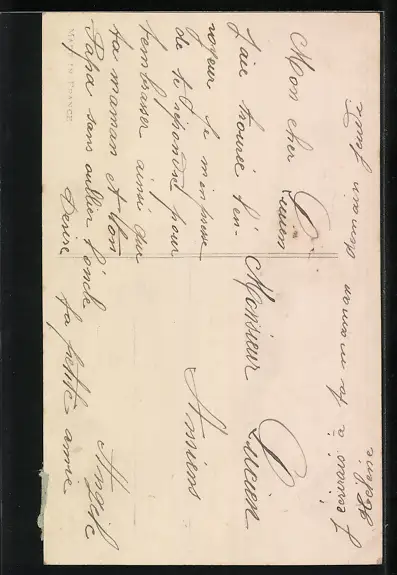 Mon cher Lucien
J'ai trouvé l'en-
voyeur je m'empresse
de te répondre pour
t'embrasser ainsi que
ta maman et ton
Papa sans oublier l'oncle
Désiré
ta petite amie
Angèle
Monsieur Lucien
Amiens
J'écrirai à ta maman demain
Made in France